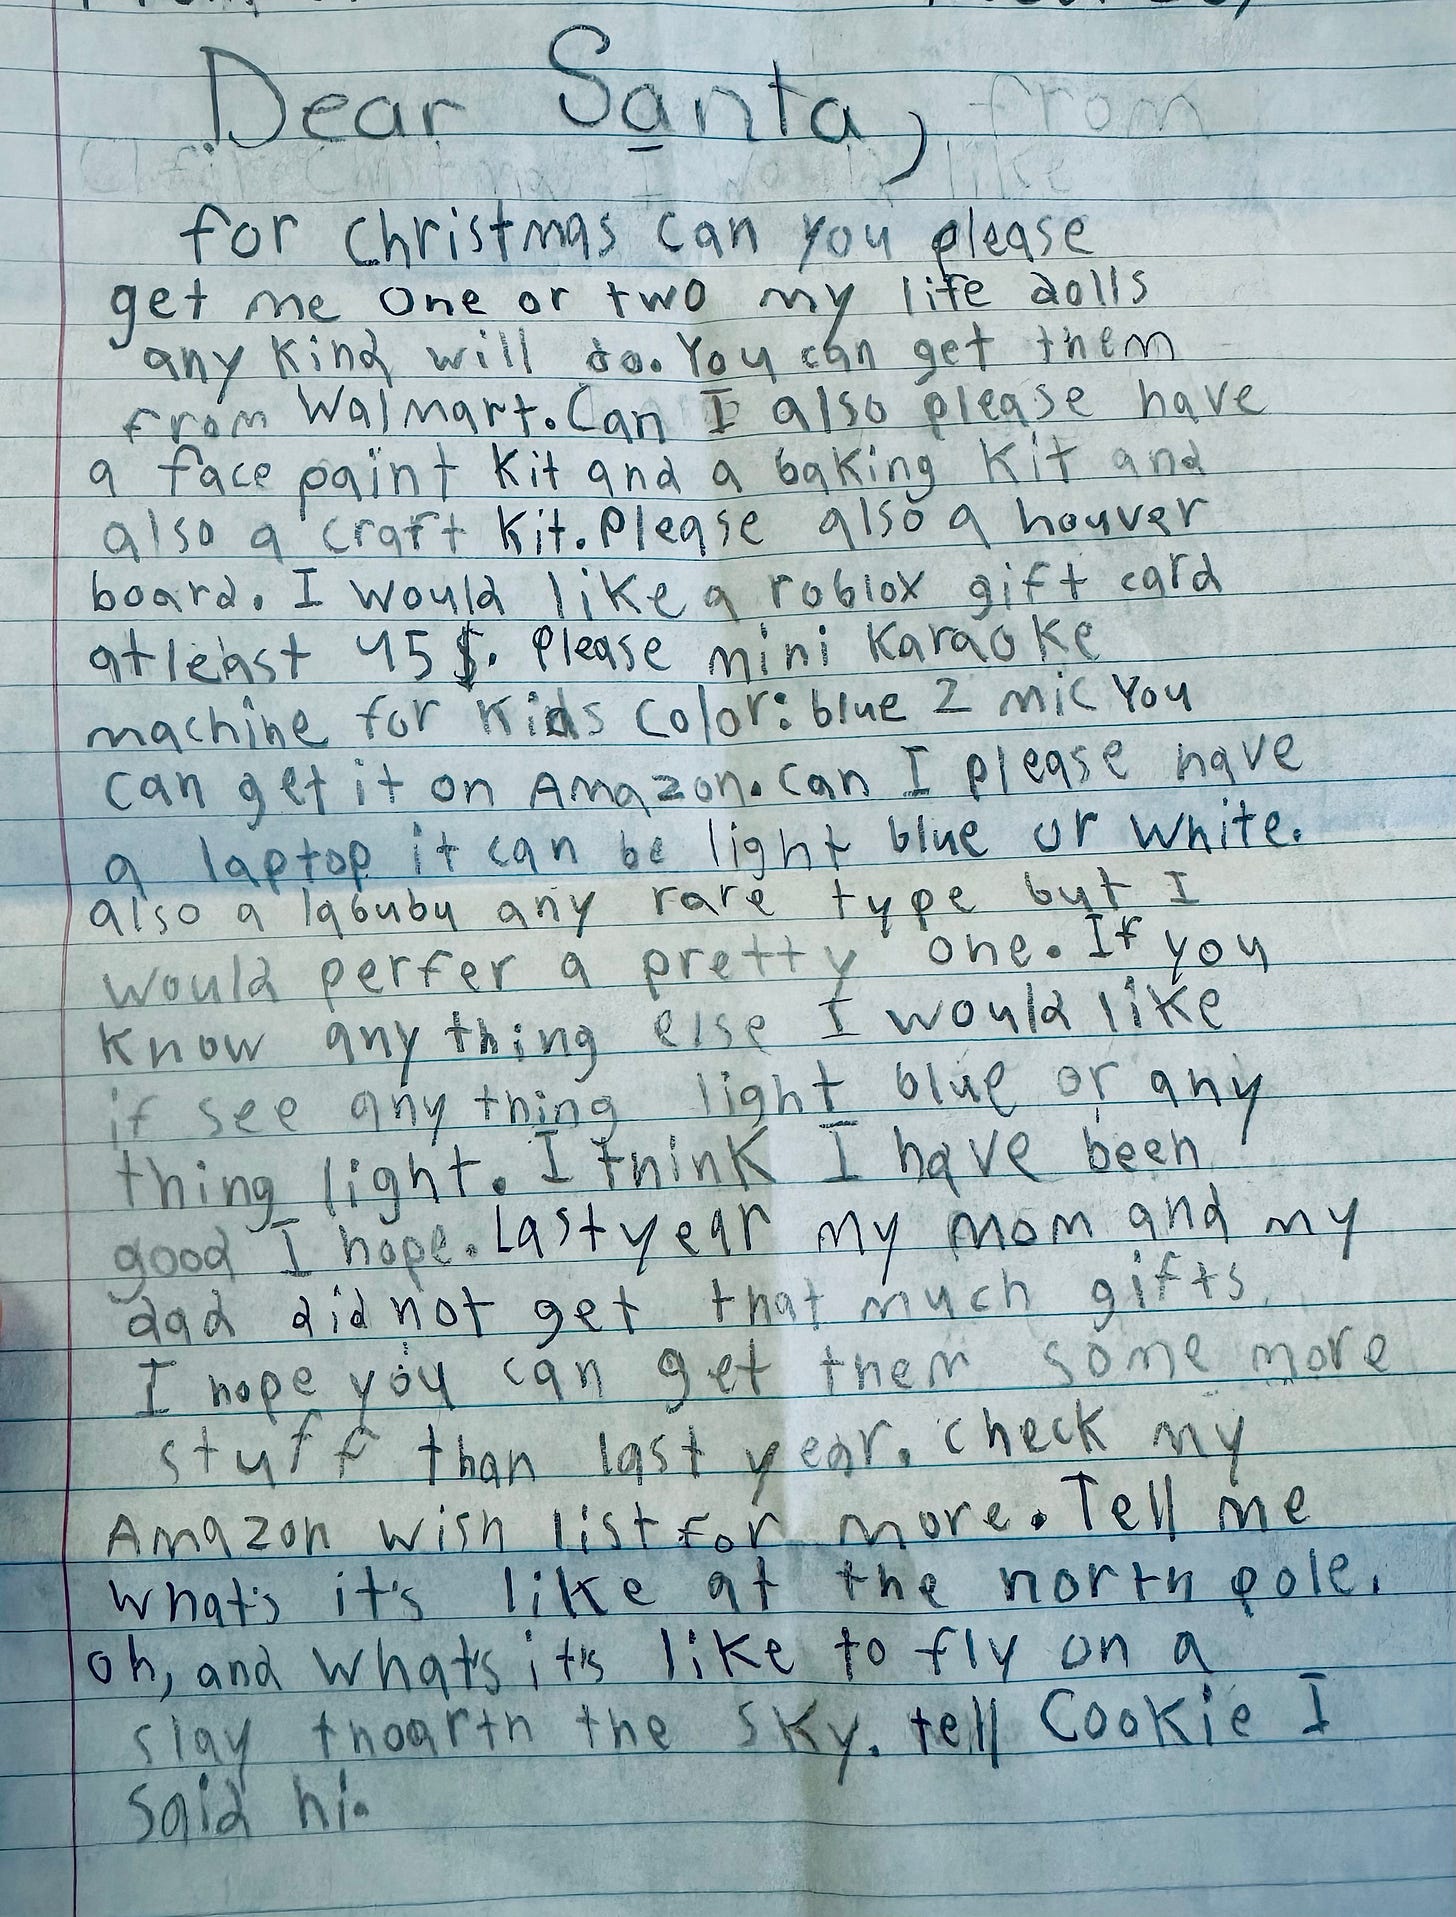 Dear Santa, from
for Christmas can you please
get me one or two my life dolls
any kind will do. You can get them
from Walmart. Can I also please have
a face paint kit and a baking kit and
also a craft kit. Please also a houver
board. I would like a roblox gift card
atleast 45$. Please mini Karaoke
machine for kids color: blue 2 mic You
can get it on Amazon. Can I please have
a laptop it can be light blue or white.
also a labuby any rare type but I
would perfer a pretty one. If you
know any thing else I would like
if see any thing light blue or any
thing light. I think I have been
good I hope. Last year my mom and my
dad did not get that much gifts
I hope you can get them some more
stuff than last year. check my
Amazon wish list for more. Tell me
what's it's like at the north pole.
oh, and what's it's like to fly on a
slay thoarth the sky. tell Cookie I
said hi.